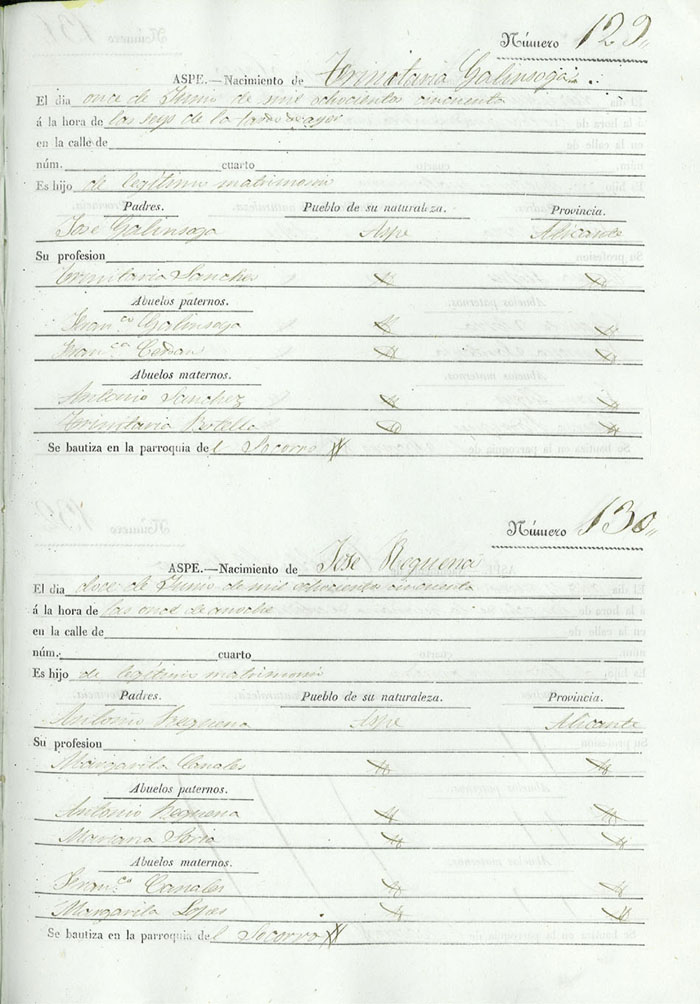 Número 129
ASPE.—Nacimiento de Trinitaria Galinsoga
El dia once de Junio de mil ochocientos cincuenta
á la hora de las seys de la tarde de ayer
en la calle de
núm. cuarto
Es hijo de legítimo matrimonio
Padres. Pueblo de su naturaleza. Provincia.
Jose Galinsoga Aspe Alicante
Su profesion
Trinitaria Sanches
Abuelos paternos.
Franco Galinsoga
Franca
Abuelos maternos.
Antonio Sanchez
Trinitaria Botella
Se bautiza en la parroquia del Socorro
Número 130
ASPE.—Nacimiento de Jose Requena
El dia doce de Junio de mil ochocientos cincuenta
á la hora de las once de anoche
en la calle de
núm. cuarto
Es hijo de legítimo matrimonio
Padres. Pueblo de su naturaleza. Provincia.
Antonio Requena Aspe Alicante
Su profesion
Margarita Canales
Abuelos paternos.
Antonio Requena
Mariana Soria
Abuelos maternos.
Franco Canales
Margarita Lopes
Se bautiza en la parroquia del Socorro